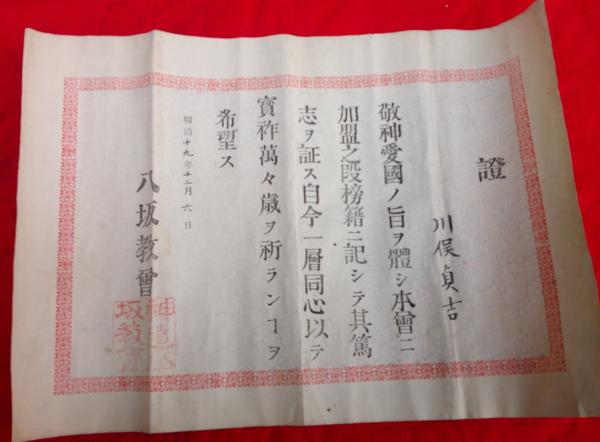 證
川俣貞吉
敬神愛國ノ旨ヲ體シ本會ニ
加盟之段榜籍ニ記シテ其篤
志ヲ証ス自今一層同心以テ
寳祚萬々歳ヲ祈ランヿヲ
希望ス
明治十九年十二月六日
八坂教會
神道八
坂教會